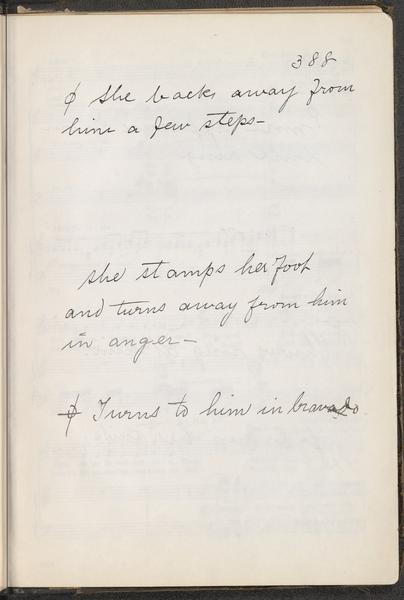 388
φ She backs away from
him a few steps—
She stamps her foot
and turns away from him
in anger—
φ Turns to him in bravado